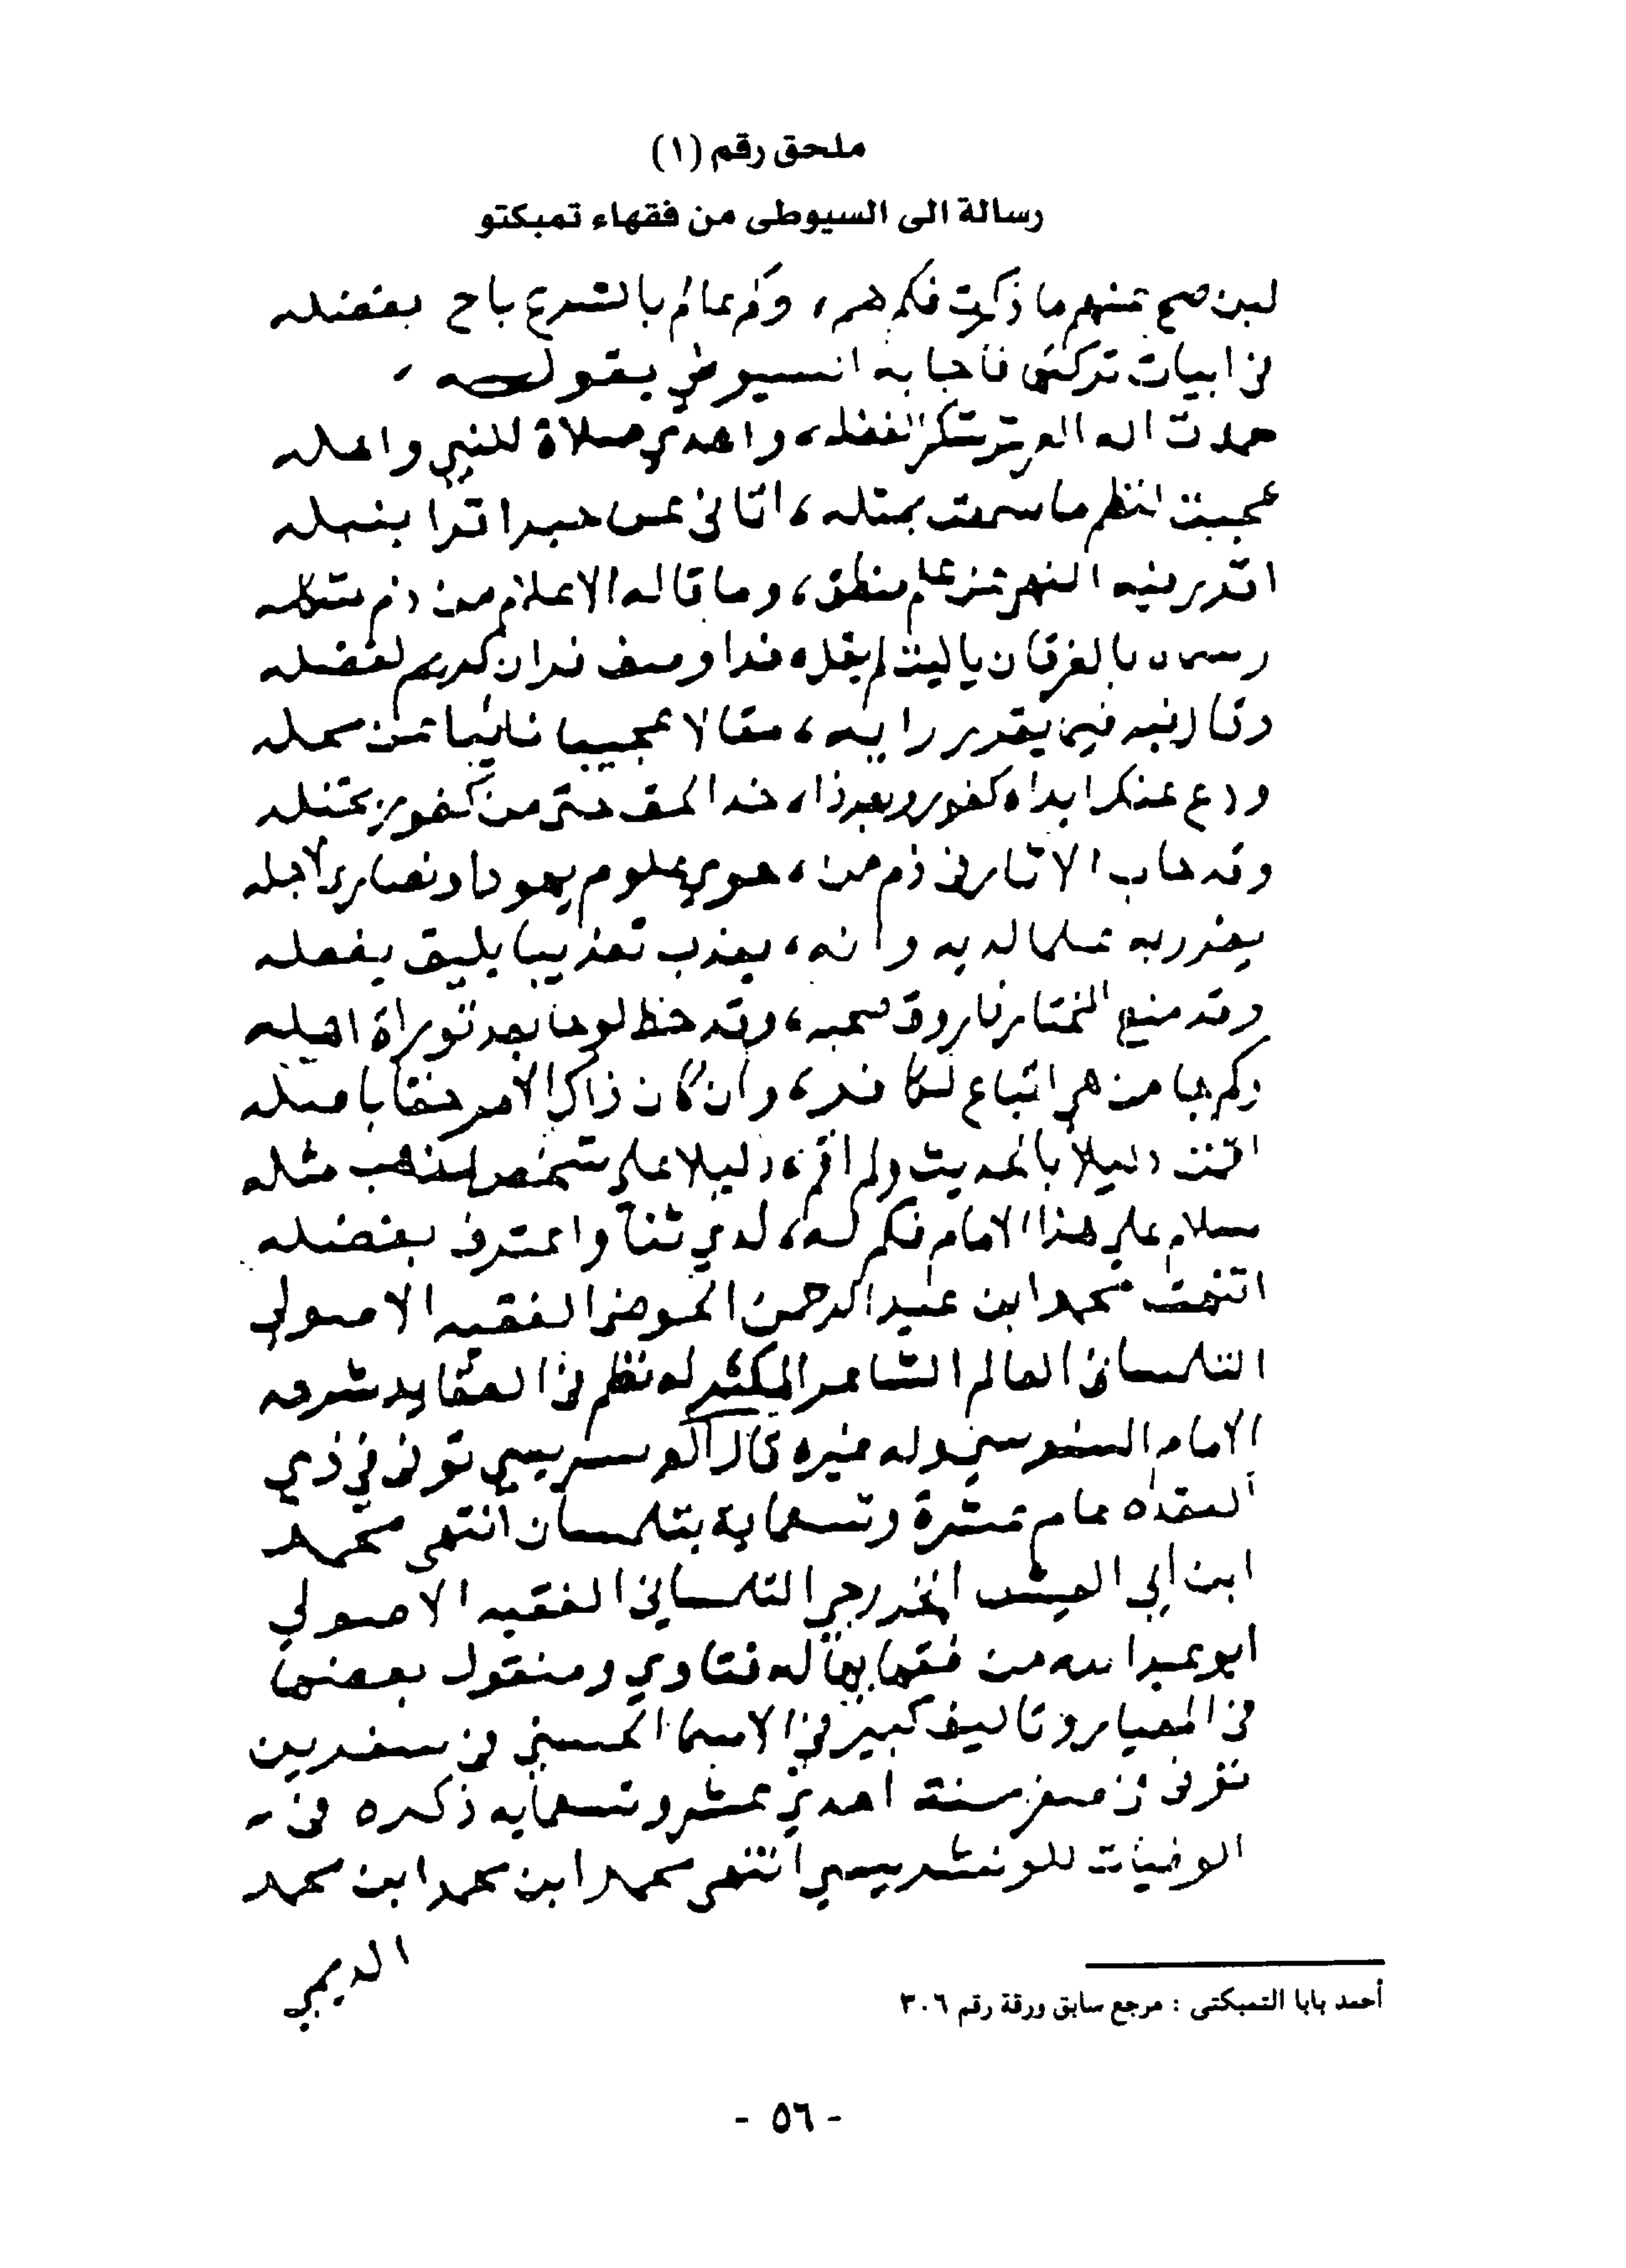 ملحق رقم (١)
رسالة الى السيوطى من فقهاء تمبكتو
لين صح عنهم ما ذكرت فكم هم، وكم عالم بالشرع باح بفضله
فى ابيات تركتها فاجابه السيوطي بقوله
حمدت اله العرش شكرا لفضله، واهدي صلاة للنبي واهله
عجبت لنظم ما سمعت بمثله، اتانى عن حبر اقر بنبله
اتقرير فيه النهي عن علم منطق، وما قاله الاعلام من ذم شكله
بالفرقان ياليت لم يقل، فذا وصف قران كريم لفضله
وقال فيه فيما يقرر رايه، مقالا عجيبا نائيا عن محله
ودع عنك ابداه كفور وبعد ذا، خذ الحق حتى من كفور بختله
وقد جات الاثار فى ذم من، حوي علوم يهود او نصارى لاجله
يعزر به علما لديه وانه، يعذب تعذيبا يليق بفعله
وقد منع المختار فاروق صحبه، وقد خط لوحا بعد توراة اهله
وكم جا من نهي اتباع لكافر، وان كان ذاك الامر حقا باصله
اقمت دليلا بالحديث ولم اقم، دليلا على شخص لمذهب مثله
سلام على هذا الامام فكم له، لدي ثنا واعترف بفضله
انتهت محمد ابن عبد الرحمن الحوضى الفقيه الاصولي
التلمسانى العالم الشاعر المكثر له نظم فى العقايد شرحه
الامام السنوسي وله غيره قال الونسريسي توفى في ذي
القعده عام عشرة وتسعماية بتلمسان انتهى محمد
ابن ابي العيش الخزرجي التلمساني الفقيه الاصولي
ابو عبد الله من فقهايها له فتاوي ومنقول بعضها
فى المعيار وتاليف كبير في الاسما الحسنى فى سفرين
توفى فى صفر سنة احدي عشر وتسعمايه ذكره فى
الوفيات للونشريسي انتهى محمد ابن محمد ابن محمد
الديمي
أحمد بابا التمبكتى : مرجع سابق ورقة رقم ٣٠٦
- ٥٦ -